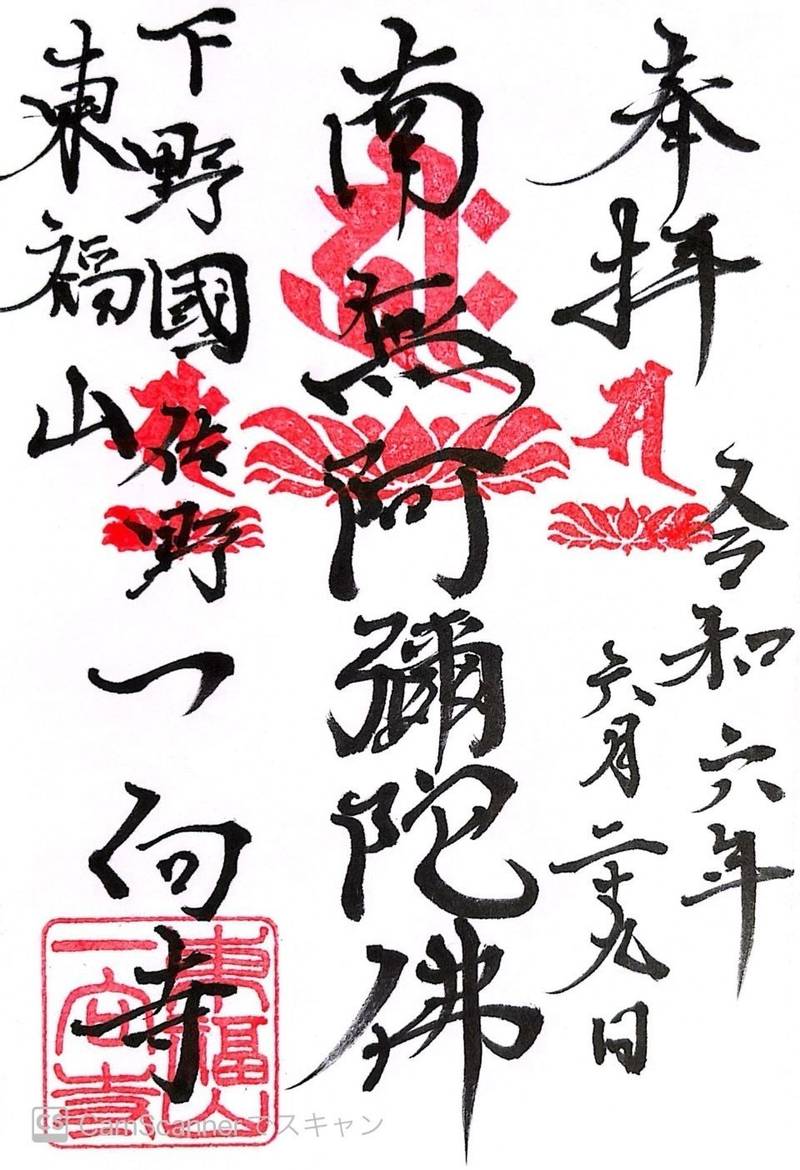 奉拝
令和六年
六月二十九日
南無阿彌陀佛
下野國佐野一向寺
東福山
東福山
一向寺
CS CamScannerでスキャン